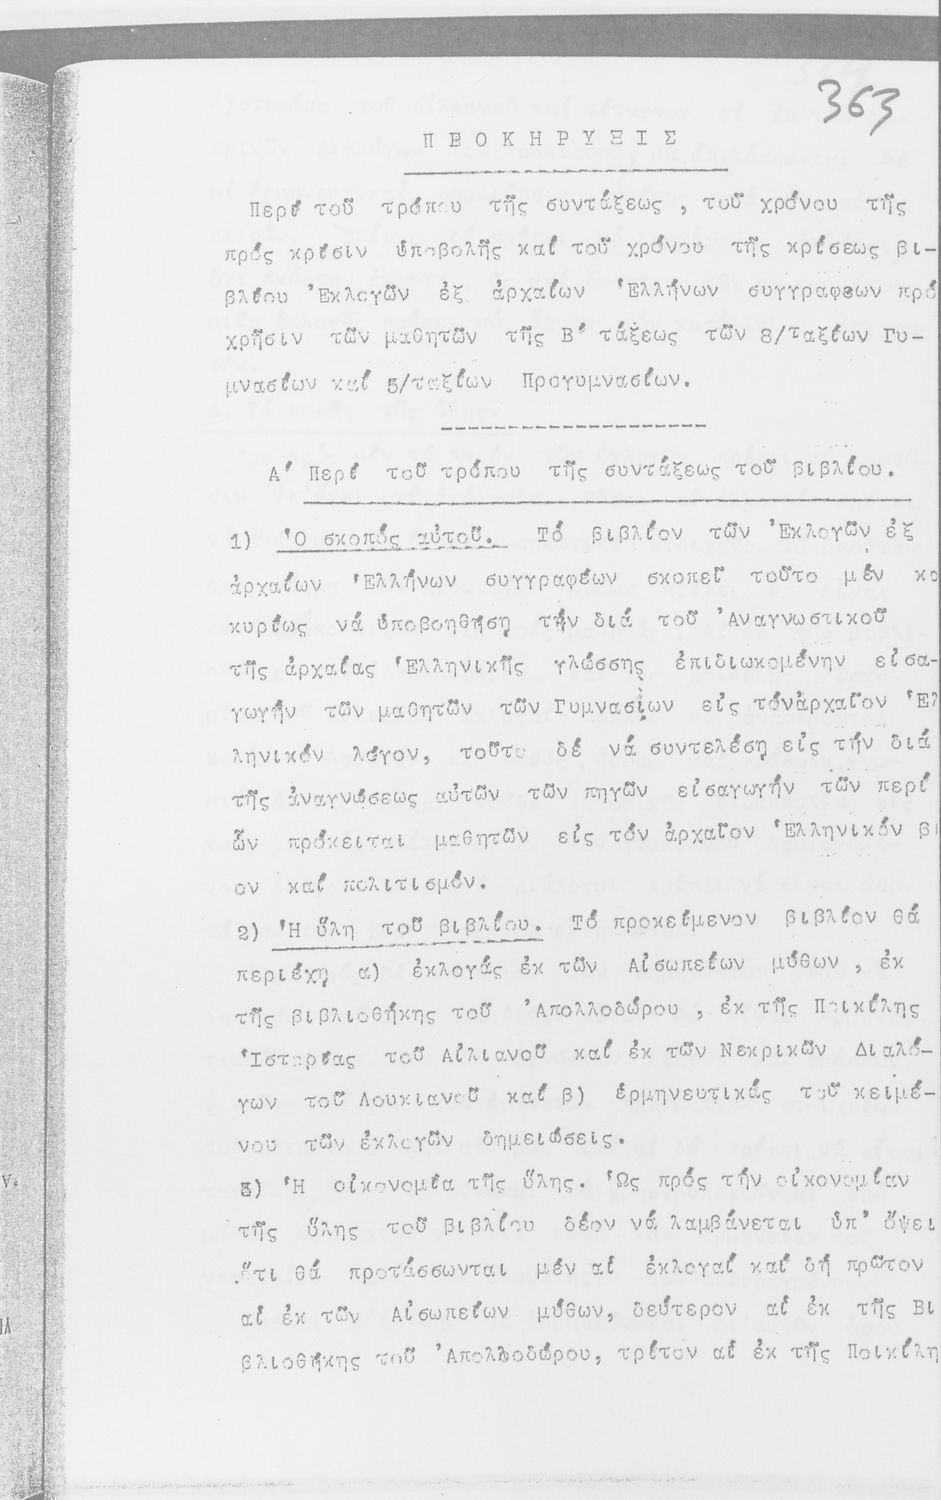 363
ΠΡΟΚΗΡΥΞΙΣ
Περί τοῦ τρόπου τῆς συντάξεως , τοῦ χρόνου τῆς
πρός κρίσιν ὑποβολῆς καί τοῦ χρόνου τῆς κρίσεως βι-
βλίου Ἐκλογῶν ἐξ ἀρχαίων Ἑλλήνων συγγραφεων πρό
χρῆσιν τῶν μαθητῶν τῆς Β' τάξεως τῶν 8/ταξίων Γυ-
μνασίων καί 5/ταξίων Προγυμνασίων.
Α' Περί τοῦ τρόπου τῆς συντάξεως τοῦ βιβλίου.
1) Ὁ σκοπός αὐτοῦ. Τό βιβλίον τῶν Ἐκλογῶν ἐξ
ἀρχαίων Ἑλλήνων συγγραφέων σκοπεῖ τοῦτο μέν κο
κυρίως νά ὑποβοηθήσῃ τήν διά τοῦ Ἀναγνωστικοῦ
τῆς ἀρχαίας Ἑλληνικῆς γλώσσης ἐπιδιωκομένην εἰσα-
γωγήν τῶν μαθητῶν τῶν Γυμνασίων εἰς τόνἀρχαῖον Ἑλ
ληνικόν λόγον, τοῦτο δέ νά συντελέσῃ εἰς τήν διά
τῆς ἀναγνώσεως αὐτῶν τῶν πηγῶν εἰσαγωγήν τῶν περί
ὧν πρόκειται μαθητῶν εἰς τόν ἀρχαῖον Ἑλληνικόν βί
ον καί πολιτισμόν.
2) Ἡ ὕλη τοῦ βιβλίου. Τό προκείμενον βιβλίον θά
περιέχῃ α) ἐκλογάς ἐκ τῶν Αἰσωπείων μύθων , ἐκ
τῆς βιβλιοθήκης τοῦ Ἀπολλοδώρου , ἐκ τῆς Ποικίλης
Ἱστορίας τοῦ Αἰλιανοῦ καί ἐκ τῶν Νεκρικῶν Διαλό-
γων τοῦ Λουκιανοῦ καί β) ἑρμηνευτικάς τοῦ κειμέ-
νου τῶν ἐκλογῶν δημειώσεις.
3) Ἡ οἰκονομία τῆς ὕλης. Ὡς πρός τήν οἰκονομίαν
τῆς ὕλης τοῦ βιβλίου δέον νά λαμβάνεται ὑπ' ὄψει
ὅτι θά προτάσσωνται μέν αἱ ἐκλογαί καί δή πρῶτον
αἱ ἐκ τῶν Αἰσωπείων μύθων, δεύτερον αἱ ἐκ τῆς Βι
βλιοθήκης τοῦ Ἀπολλοδώρου, τρίτον αἱ ἐκ τῆς Ποικίλη